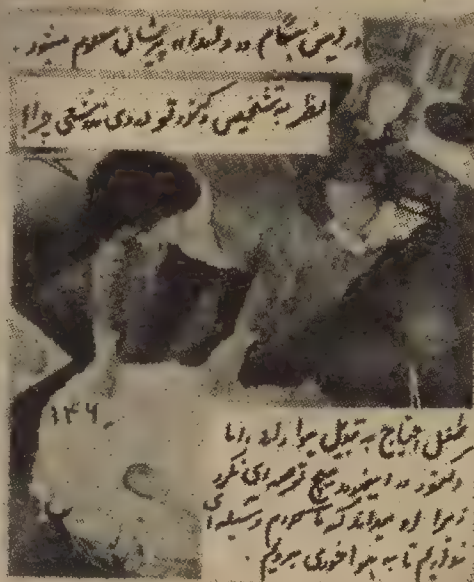 در این هنگام دو دلداده پریشان معلوم میشود.
نظر به تشخیص دکتور قوددی
۱۴۶
طفل احتیاج به تبدیل هوا دارد. اما
دکتور در اینمورد هیچ توصیه ای نکرد
زیرا او میداند که ما کدام وسیله ای
نداریم تا به هواخوری برویم.